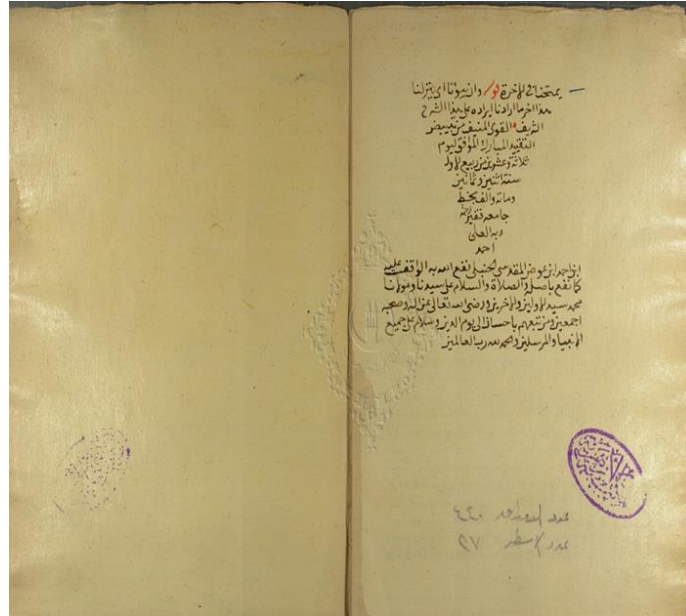 يمتحنا في الآخرة قوله وان يبوئنا اي ينزلنا
هذا اخر ما اردنا ايراده على هذا الشرح
الشريف القوى المنيف من تبييض
الفقيه المبارك الموفق ليوم
ثلاثة وعشرين من ربيع الاول
سنة اثنين وثمانين
ومائة والف بخط
جامعه فقير رحمة
ربه العلي
احمد
ابن احمد ابن عوض المقدسي الحنبلي نفع الله به الواقف عليه
كما نفع باصله والصلاة والسلام على سيدنا ومولانا
محمد سيد الاولين والاخرين ورضى الله تعالى عن اله وصحبه
اجمعين ومن تبعهم باحسان الى يوم الدين وسلام على جميع
الانبيا والمرسلين والحمد لله رب العالمين
عدد الاوراق ٤٤٠
عدد الاسطر ٢٧